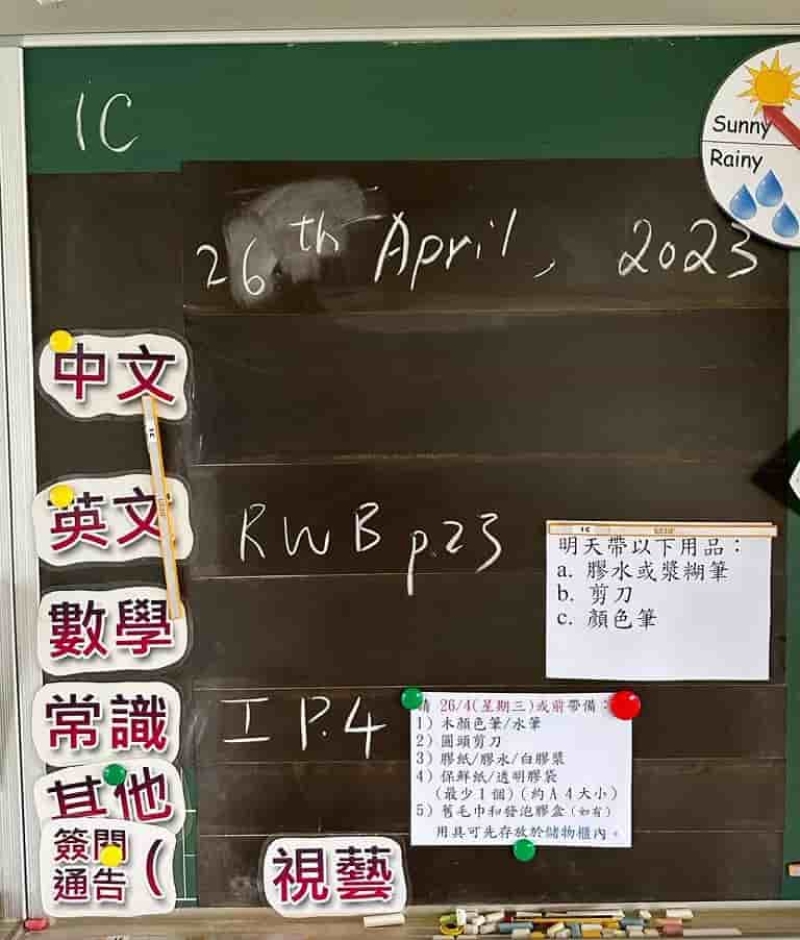 1C
Sunny
Rainy
26th April, 2023
中文
英文
RWB p.23
1C
明天帶以下用品：
a. 膠水或漿糊筆
b. 剪刀
c. 顏色筆
數學
常識
I P.4
請 26/4(星期三)或前帶備：
1) 木顏色筆/水筆
2) 圓頭剪刀
3) 膠紙/膠水/白膠漿
4) 保鮮紙/透明膠袋
(最少 1 個) (約 A 4 大小)
5) 舊毛巾和發泡膠盒 (如有)
用具可先存放於儲物櫃內。
其他
簽閱
通告 (
視藝